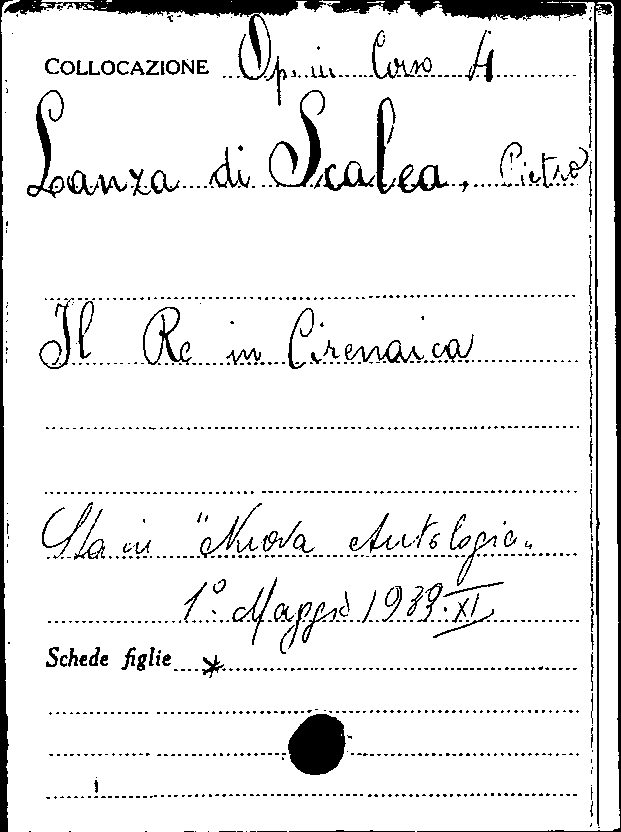 COLLOCAZIONE Op. in Corso 4
Lanza di Scalea, Pietro
Il Re in Cirenaica
Sta in "Nuova Antologia"
1º Maggio 1933·XI
Schede figlie *